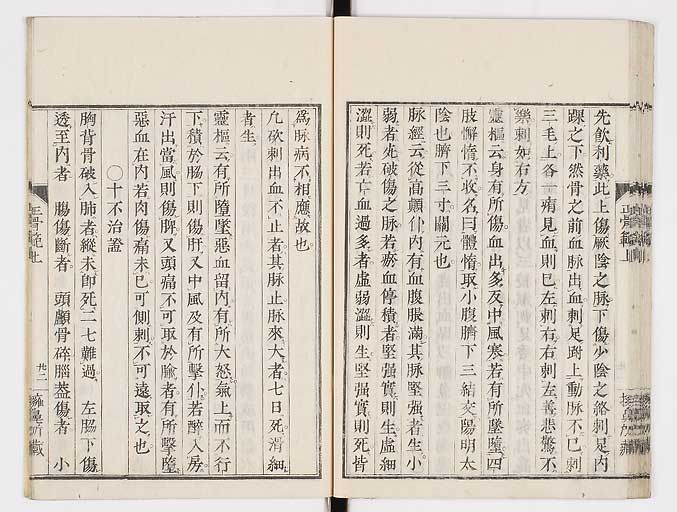 先飲利藥此上傷厥陰之脉下傷少陰之絡刺足內
踝之下然骨之前血脉出血刺足跗上動脉不已刺
三毛上各一痏見血則已左刺右右刺左善悲驚不
樂刺如右方
靈樞云身有所傷血出多及中風寒若有所墜墮四
肢懈惰不收名曰體惰取小腹臍下三結交陽明太
陰也臍下三寸關元也
脉經云從高顛仆內有血腹脹滿其脉堅強者生小
弱者死破傷之脉若瘀血停積者堅强實則生虛細
澀則死若亡血過多者虛弱澀則生堅强實則死皆
爲脉病不相應故也
凡砍刺出血不止者其脉止脉來大者七日死滑細
者生
靈樞云有所墮墜惡血留內有所大怒氣上而不行
下積於脇下則傷肝又中風及有所擊仆若醉入房
汗出當風則傷脾又頭痛不可取於腧者有所擊墮
惡血在內若肉傷痛未已可側刺不可遠取之也
〇十不治證
胸背骨破入肺者縱未卽死二七難過 左脇下傷
透至內者 腸傷斷者 頭顱骨碎腦葢傷者 小
正骨範上
廿二